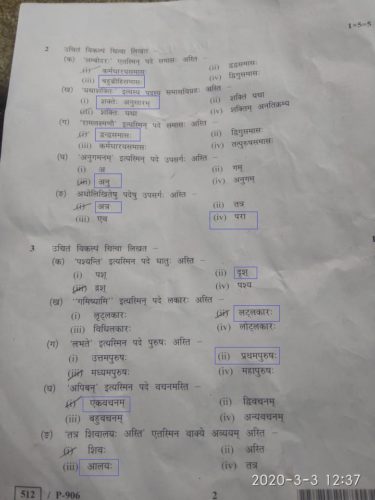 1×5=5
2 उचितं विकल्पं चित्वा लिखत –
(क) 'लम्बोदरः' एतस्मिन् पदे समासः अस्ति –
(i) कर्मधारयसमासः (ii) द्वन्द्वसमासः
(iii) बहुव्रीहिसमासः (iv) द्विगुसमासः
(ख) 'यथाशक्तिः' इत्यस्य पदस्य समासविग्रहः अस्ति –
(i) शक्तेः अनुसारम् (ii) शक्ति यथा
(iii) शक्तिः यथा (iv) शक्तिम् अनतिक्रम्य
(ग) 'रामलक्ष्मणौ' इत्यस्मिन् पदे समासः अस्ति –
(i) द्वन्द्वसमासः (ii) द्विगुसमासः
(iii) कर्मधारयसमासः (iv) तत्पुरुषसमासः
(घ) 'अनुगमनम्' इत्यस्मिन् पदे उपसर्गः अस्ति –
(i) अ (ii) गम्
(iii) अनु (iv) अनुगम्
(ङ) अधोलिखितेषु पदेषु उपसर्गः अस्ति –
(i) अत्र (ii) तत्र
(iii) एव (iv) परा
3 उचितं विकल्पं चित्वा लिखत –
(क) 'पश्यन्ति' इत्यस्मिन् पदे धातुः अस्ति –
(i) पश् (ii) दृश्
(iii) द्रश् (iv) पश्य
(ख) 'गमिष्यामि' इत्यस्मिन् पदे लकारः अस्ति –
(i) लृट्लकारः (ii) लट्लकारः
(iii) विधिलकारः (iv) लोट्लकारः
(ग) 'लभते' इत्यस्मिन् पदे पुरुषः अस्ति –
(i) उत्तमपुरुषः (ii) प्रथमपुरुषः
(iii) मध्यमपुरुषः (iv) महापुरुषः
(घ) 'अपिबन्' इत्यस्मिन् पदे वचनमस्ति –
(i) एकवचनम् (ii) द्विवचनम्
(iii) बहुवचनम् (iv) अन्यवचनम्
(ङ) 'तत्र शिवालयः अस्ति' एतस्मिन वाक्ये अव्ययम् अस्ति –
(i) शिवः (ii) अस्ति
(iii) आलयः (iv) तत्र
2020-3-3 12:37
512 / P-906 2